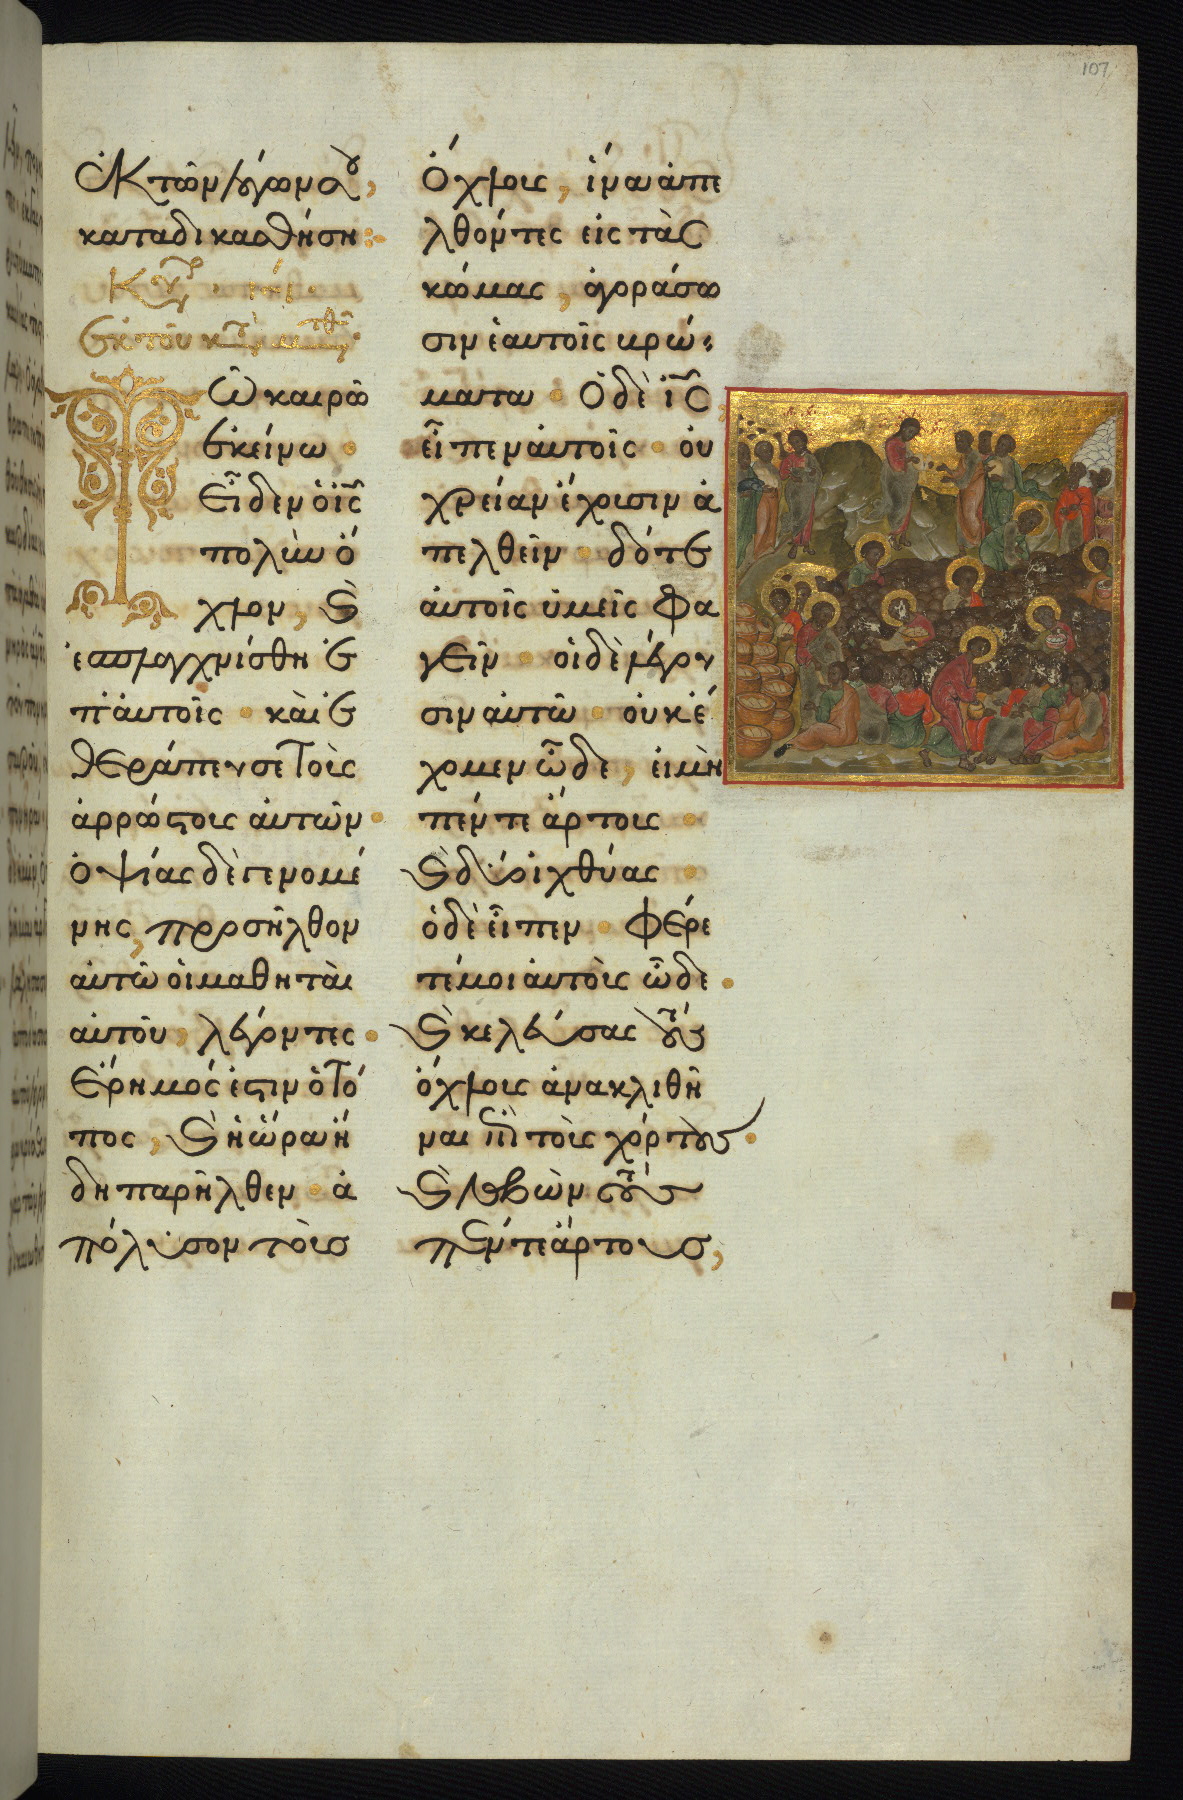 ἐκ τῶν λόγων σου,
καταδικασθήση
Κυ
ἐκ τοῦ κατὰ ματθ
Τῶ καιρῶ
ἐκείνω
εἶδεν ὁ ἰς
πολὺν ὄ
χλον, καὶ
ἐσπλαγχνίσθη ἐ
π' αὐτοῖς · καὶ ἐ
θεράπευσε τοὺς
ἀρρώστους αὐτῶν ·
ὀψίας δὲ γενομέ
νης, προσῆλθον
αὐτῶ οἱ μαθηταὶ
αὐτοῦ, λέγοντες ·
ἔρημός ἐστιν ὁ τό
πος, καὶ ἡ ὥρα ἤ
δη παρῆλθεν · ἀ
πόλυσον τοὺς
107
ὄχλους, ἵνα ἀπε
λθόντες εἰς τὰς
κώμας, ἀγοράσω
σιν ἑαυτοῖς βρώ
ματα · Ὁ δὲ ἰς
εἶπεν αὐτοῖς · οὐ
χρείαν ἔχουσιν ἀ
πελθεῖν · δότε
αὐτοῖς ὑμεῖς φα
γεῖν · οἱ δὲ λέγου
σιν αὐτῶ · οὐκ ἔ
χομεν ὧδε, εἰ μὴ
πέντε ἄρτους ·
καὶ δύο ἰχθύας ·
ὁ δὲ εἶπεν · φέρε
τέ μοι αὐτοὺς ὧδε ·
καὶ κελεύσας τοὺς
ὄχλους ἀνακλιθῆ
ναι ἐπὶ τοὺς χόρτους ·
καὶ λαβὼν τοὺς
πέντε ἄρτους,